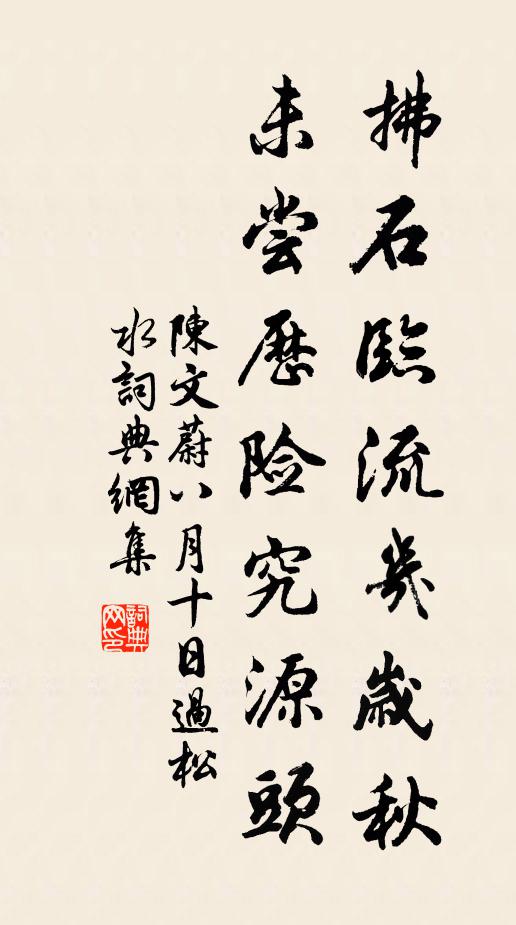 拂石臨流幾歲秋
未尝歷险究源頭
陳文蔚八月十日過松
水詞典網集
詞典网印